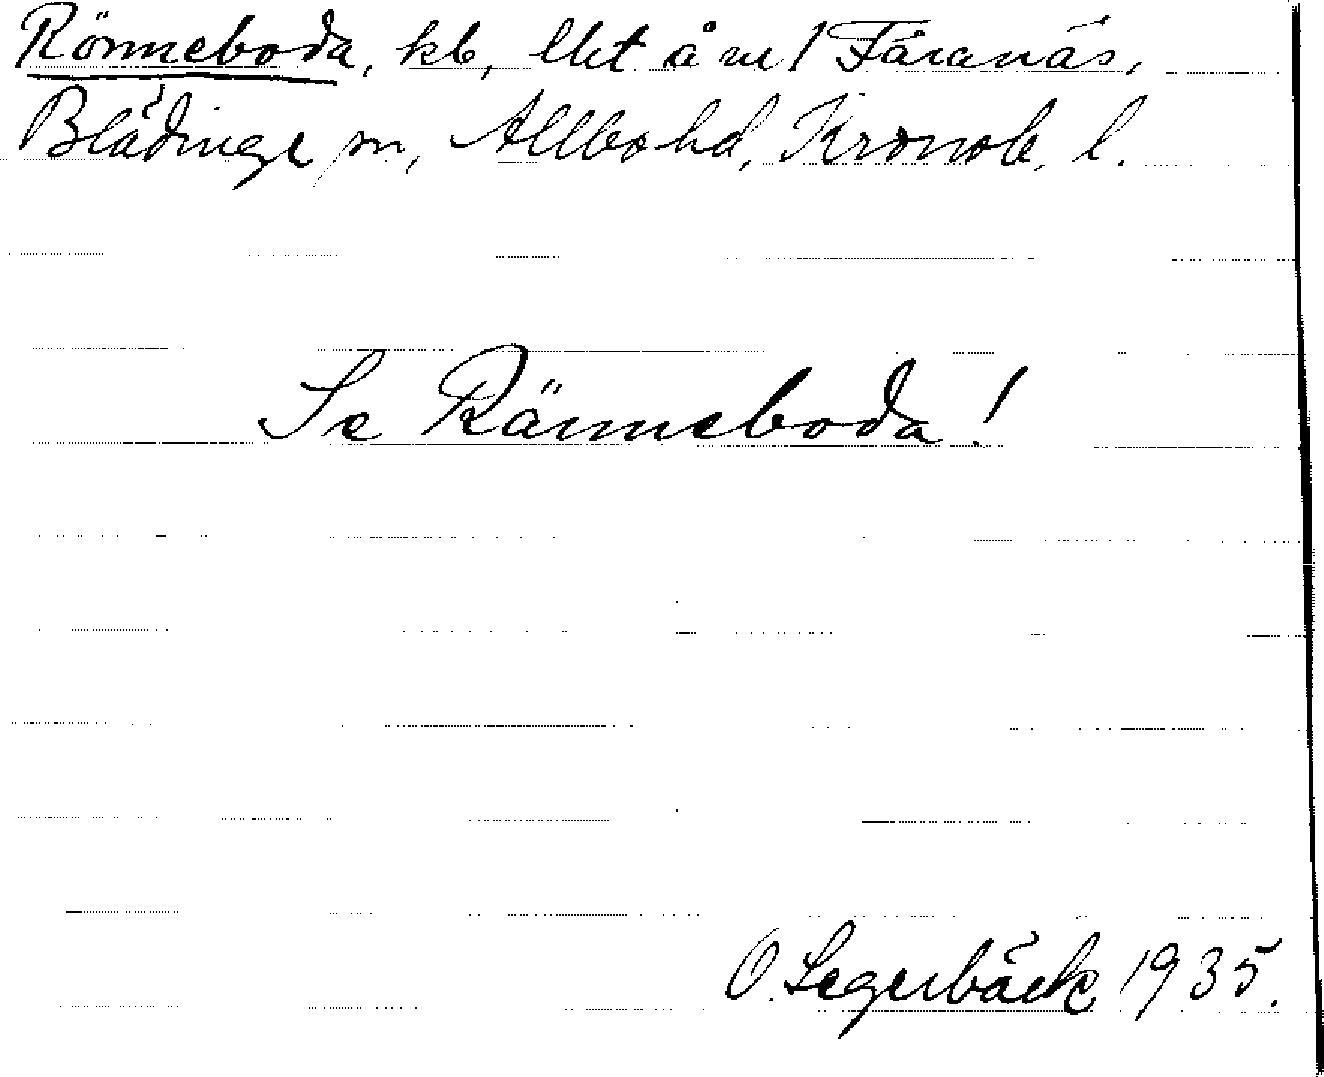 Rönneboda, kb, lht å nr 1 Fåranäs,
Blädinge sn, Allbo hd, Kronob. l.
Se Ränneboda!
O. Segerbäck 1935.